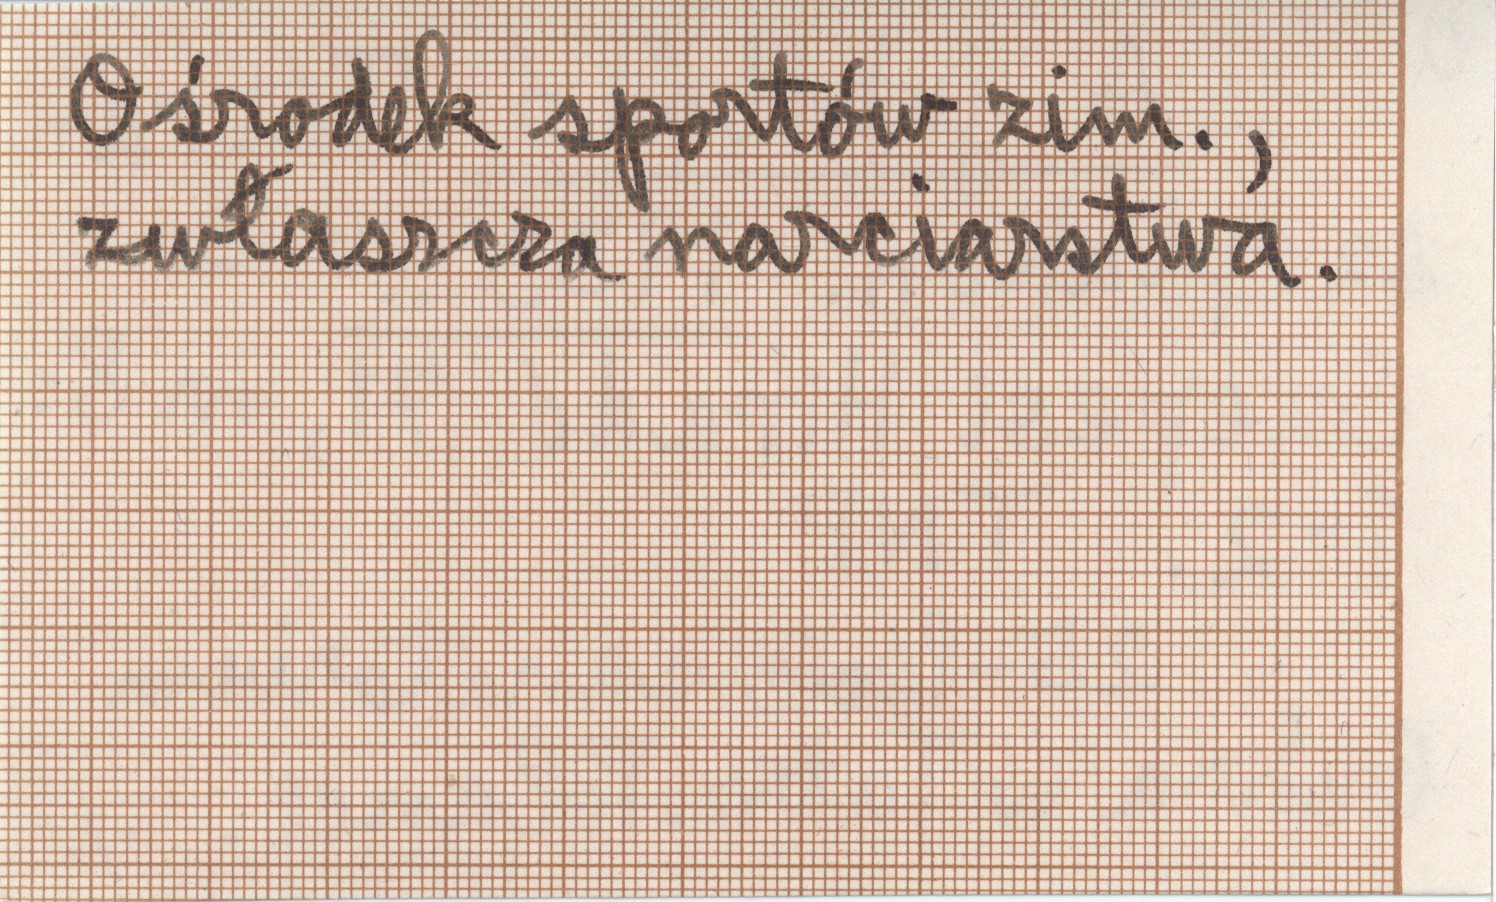 Ośrodek sportów zim.,
zwłaszcza narciarstwa.